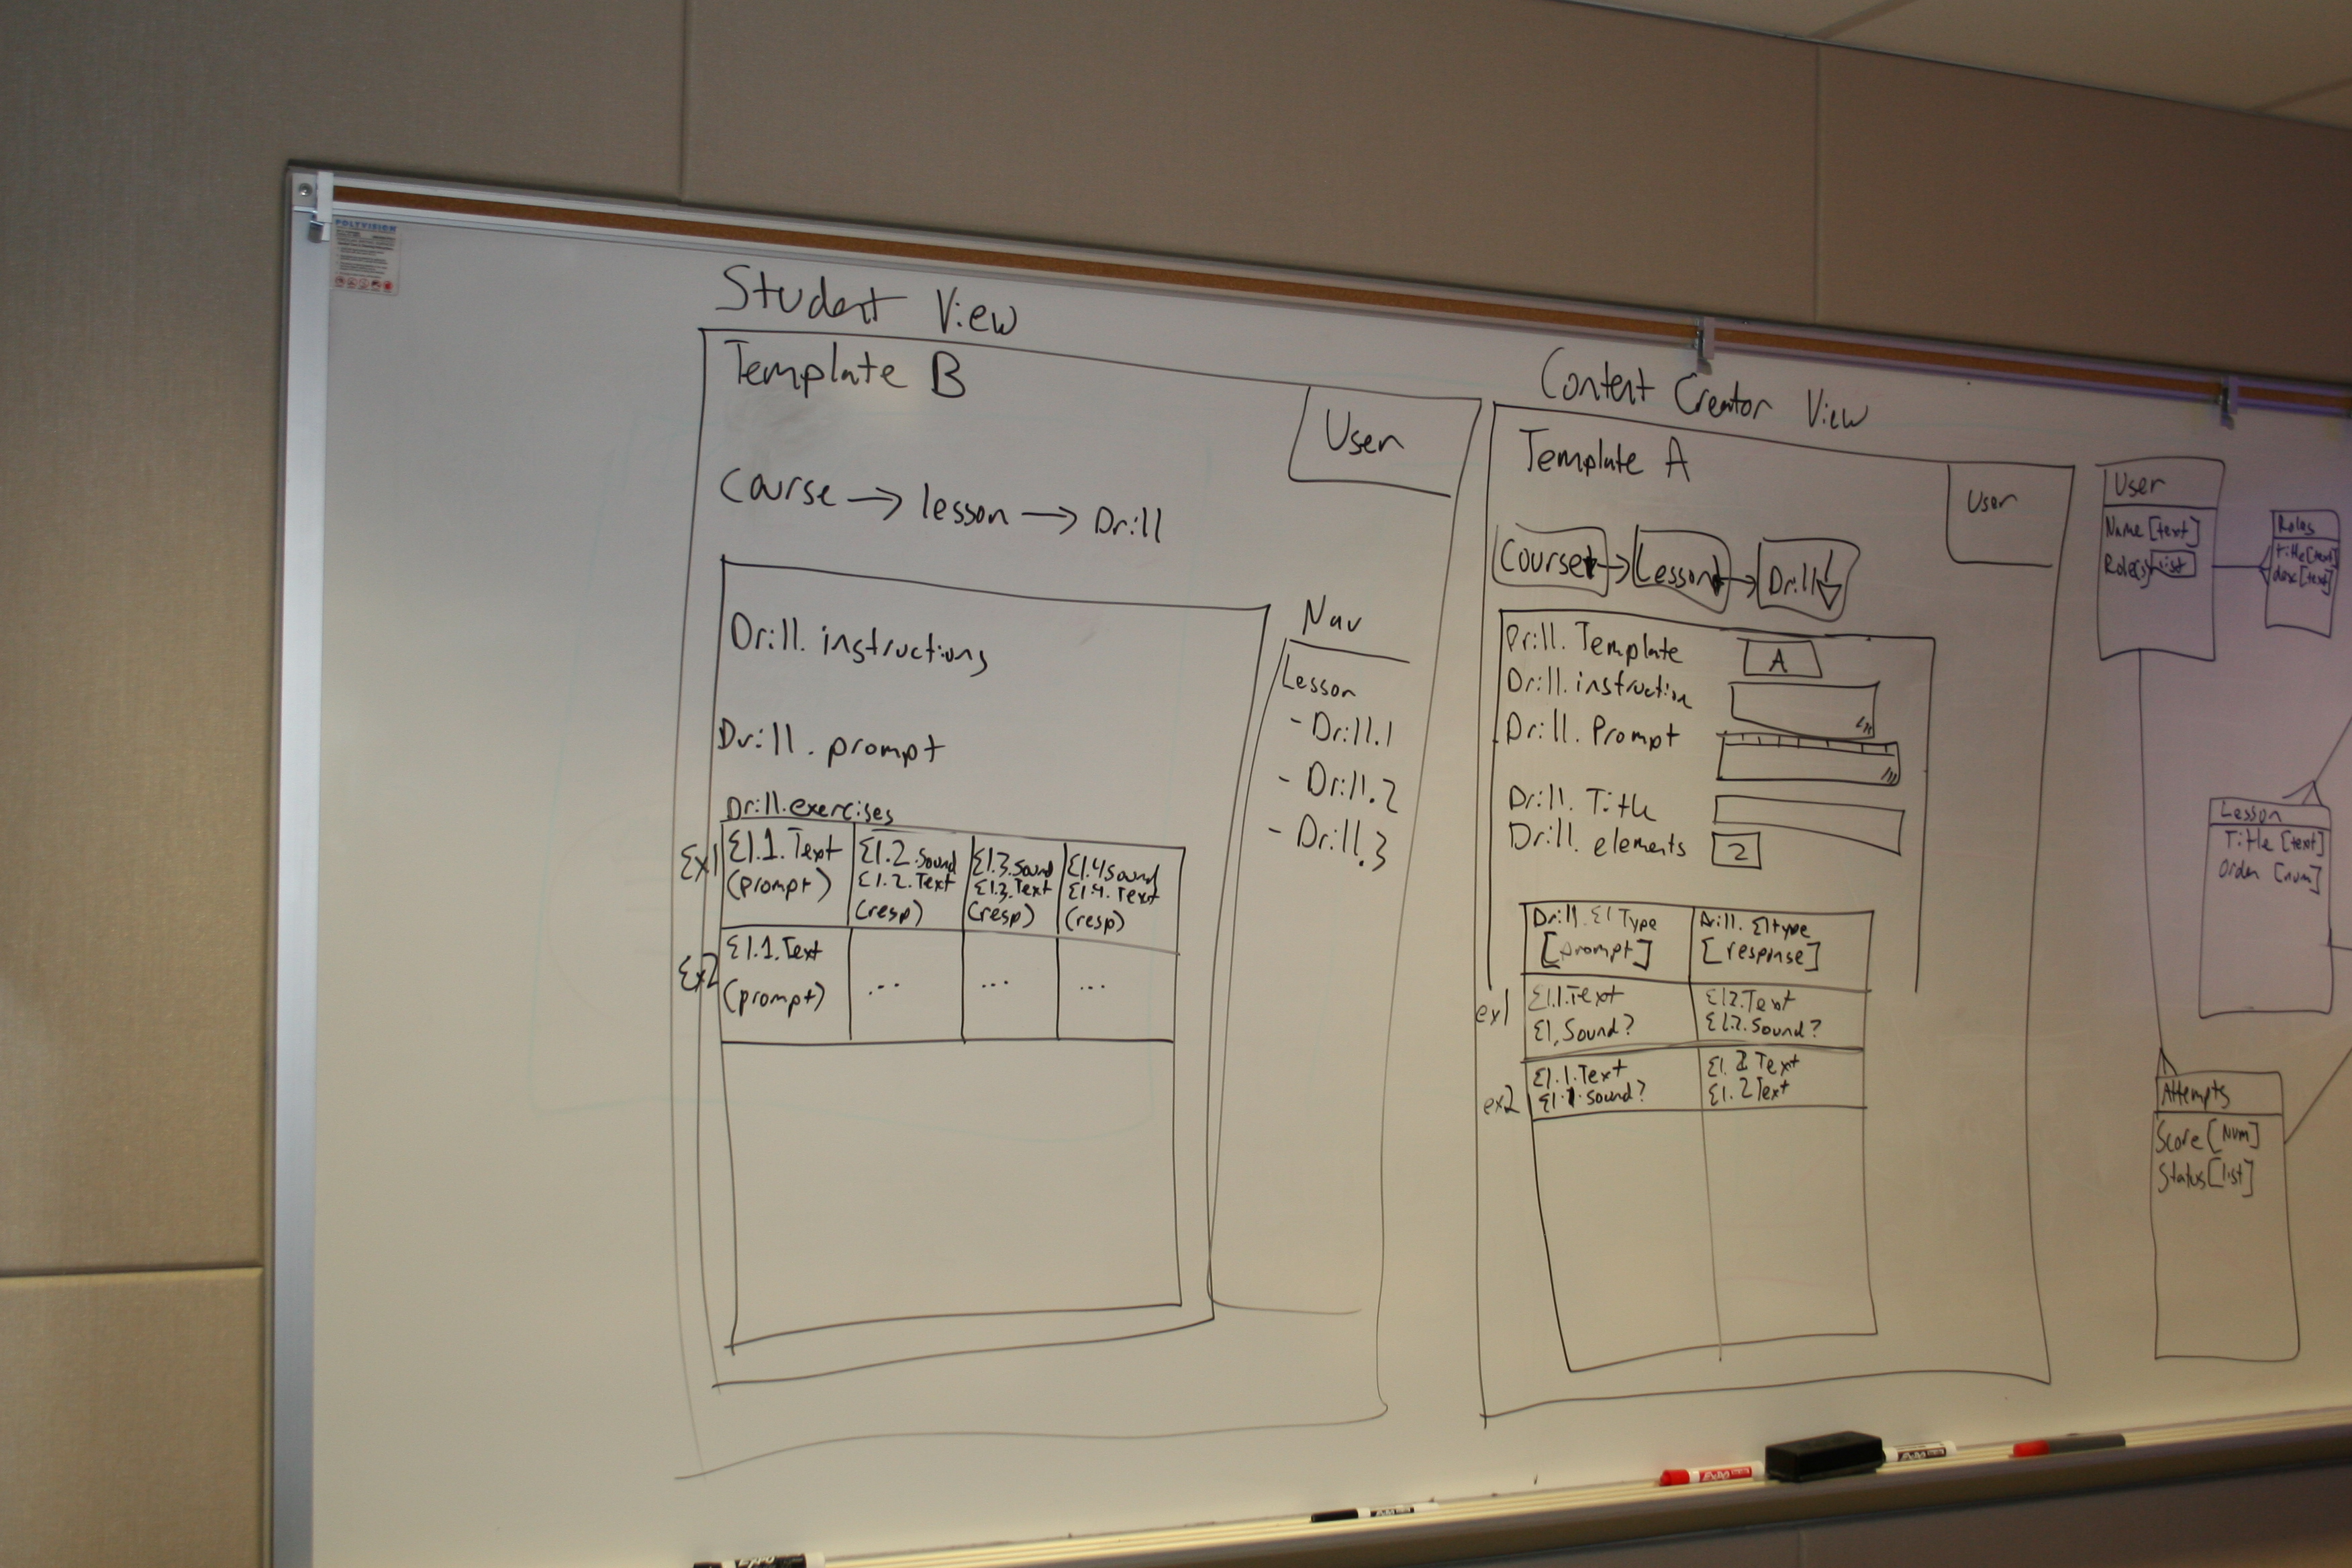 POLYVISION
Student View
Template B
User
Course → lesson → Drill
Drill. instructions
Drill. prompt
Drill. exercises
Ex1
El.1. Text
(prompt)
El.2. Sound
El.2. Text
(resp)
El.3. Sound
El.3. Text
(resp)
El.4 Sound
El.4. Text
(resp)
Ex2
El.1. Text
(prompt)
...
...
...
Nav
Lesson
- Drill.1
- Drill.2
- Drill.3
Content Creator View
Template A
User
Course → Lesson → Drill
Drill. Template A
Drill. instruction
Drill. Prompt
Drill. Title
Drill. elements 2
Drill. El Type
[prompt]
Drill. Eltype
[response]
ex1
El.1.Text
El, Sound?
El2.Text
El.2. Sound?
ex2
El.1.Text
El.1. sound?
El. 2 Text
El. 2 Text
User
Name [text]
Role(s) list
Roles
title [text]
desc [text]
Lesson
Title [text]
Order [num]
Attempts
Score [Num]
Status [list]
EXPO
EXPO